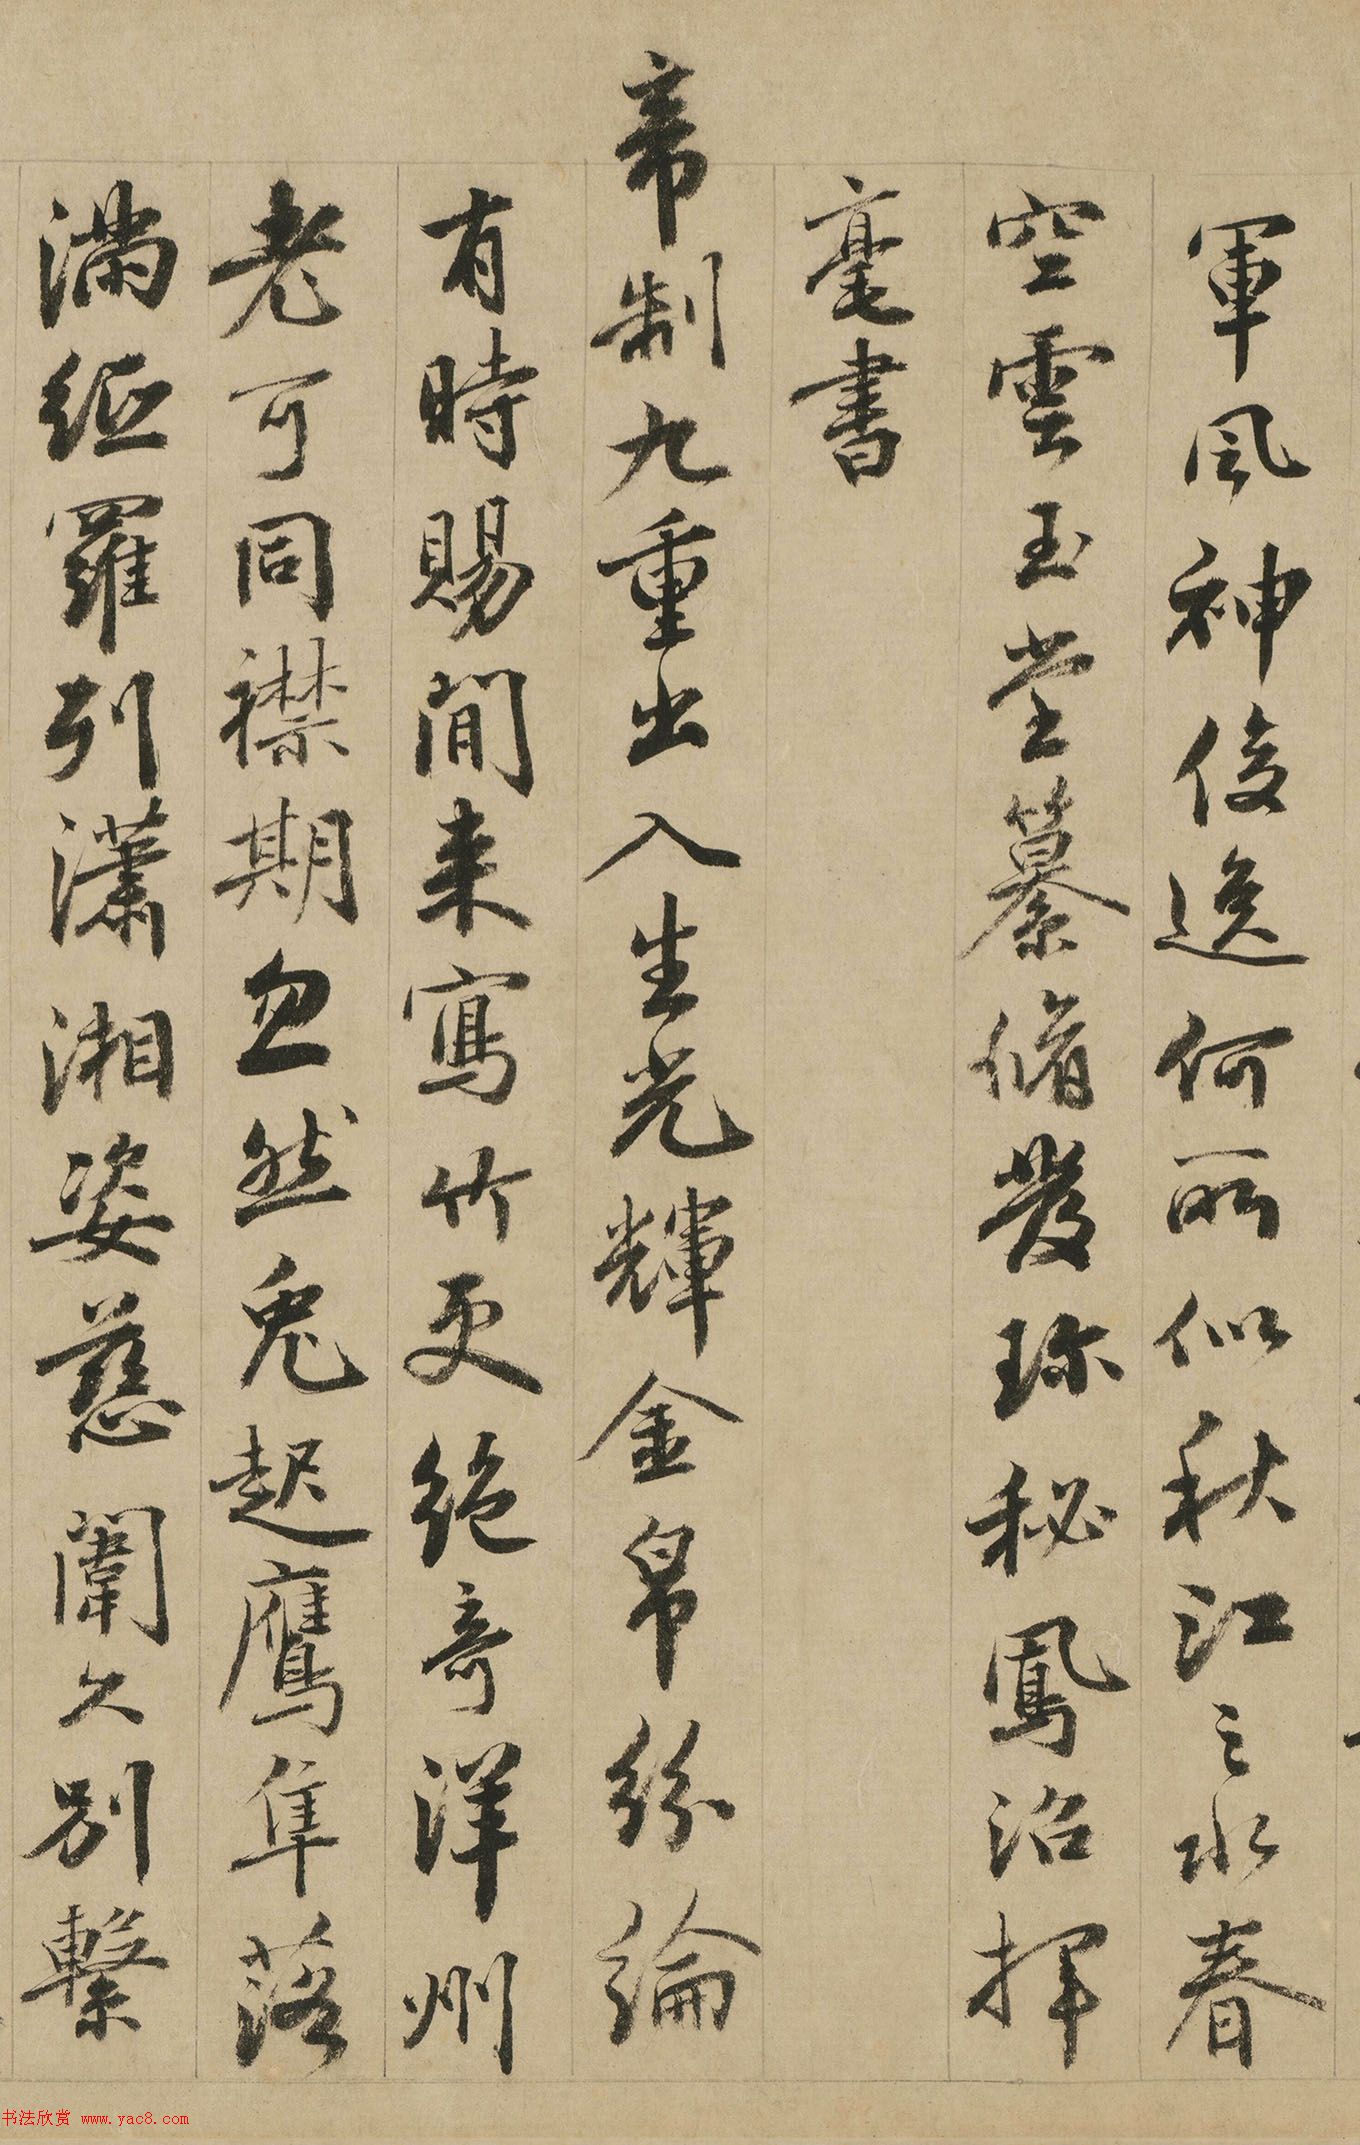 軍風神俊逸何所似秋江之水春
空雲玉堂纂脩發珎秘鳳沼揮
毫書
帝制九重出入生光輝金帛紛綸
有時賜閒来寫竹更絶奇洋州
老可同襟期忽然兎起鷹隼落
滿紙羅列瀟湘姿慈闈久別繫
书法欣赏 www.yac8.com